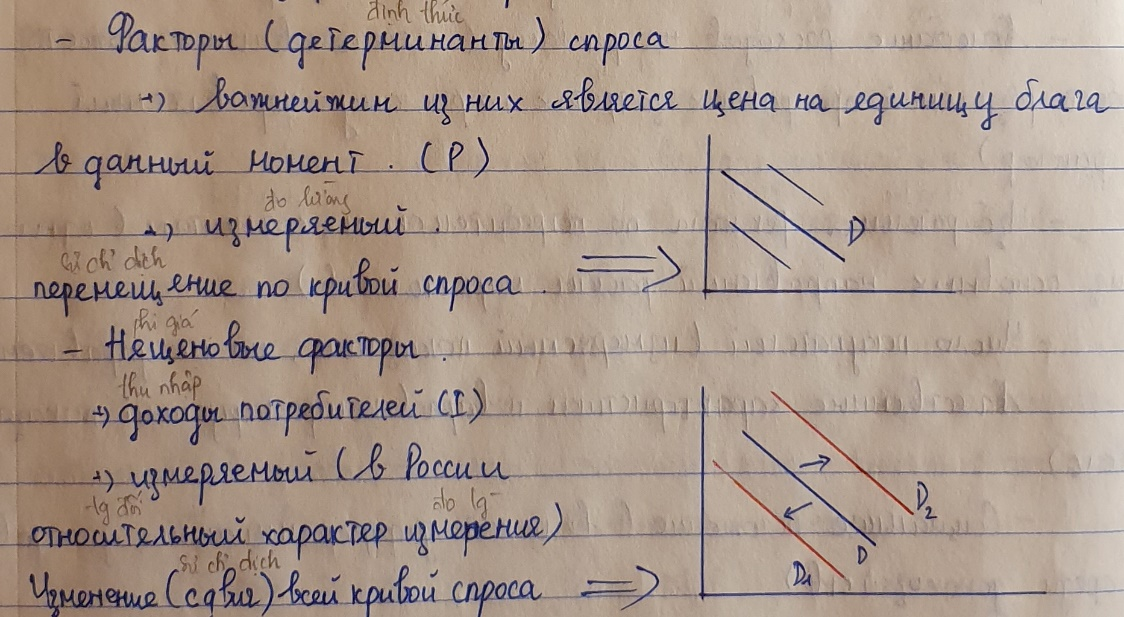 định thức
- Факторы (детерминанты) спроса
→ важнейжин из них является цена на единицу блага
в данный момент. (P)
đo lường
→ измеряемый.
Sự chỉ dịch
перемещение по кривой спроса
D
phi giá
- Неценовые факторы.
thu nhập
→ доходы потребителей (I)
→ измеряемый (в России
tg đối đo lg
относительный характер измерения)
sự chỉ dịch
Изменение (сдвиг) всей кривой спроса
D₂
D
D₁